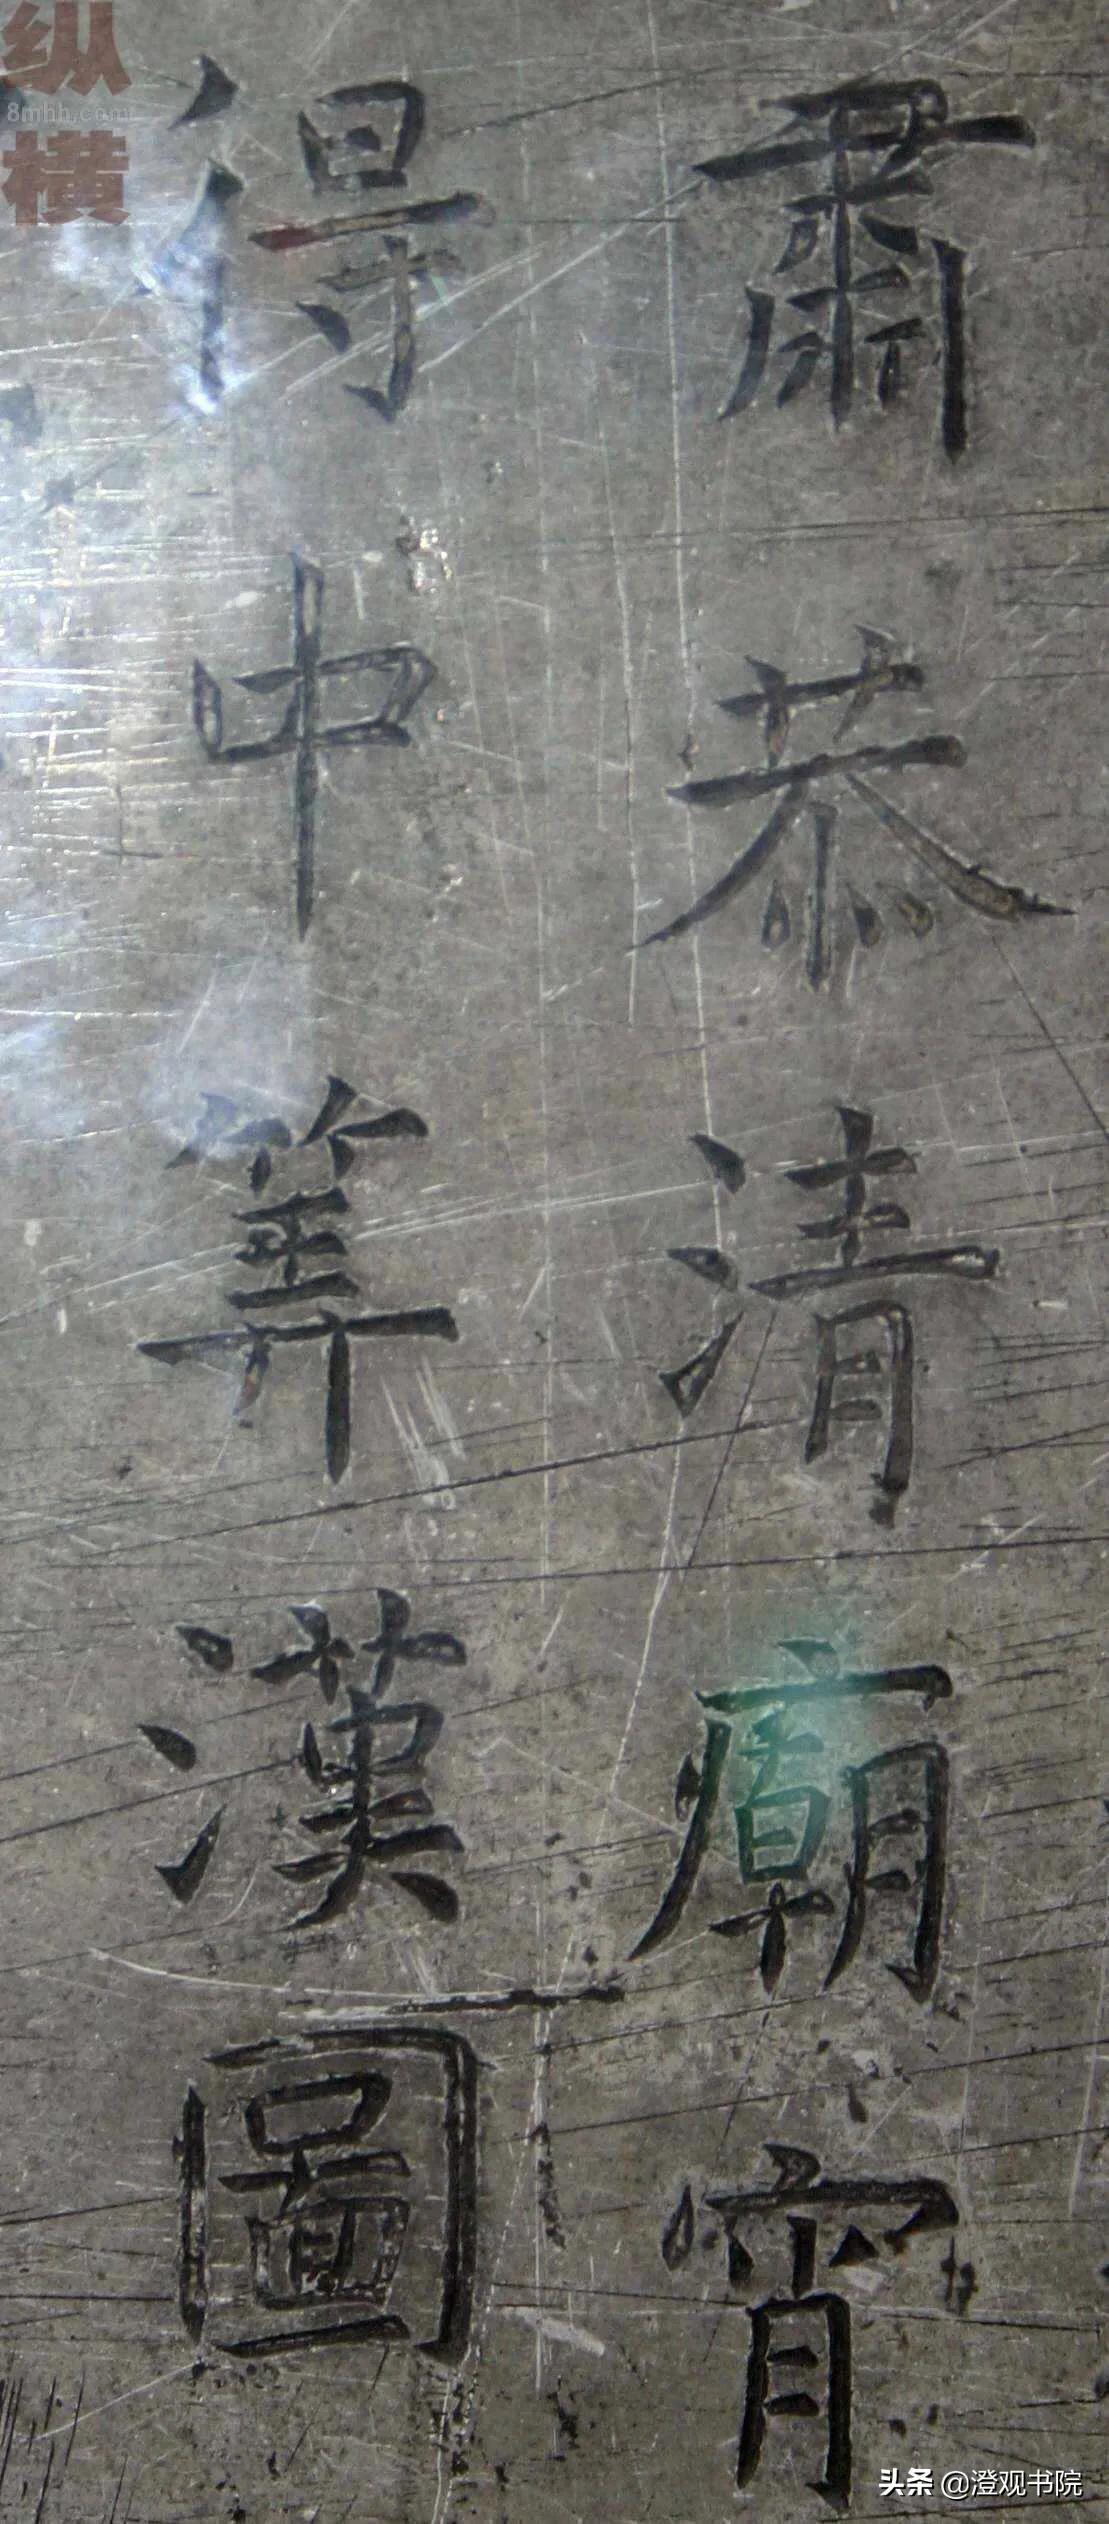 肅恭清廟宵
得中筭漢圖
纵横
8mhh.com
头条 @澄观书院